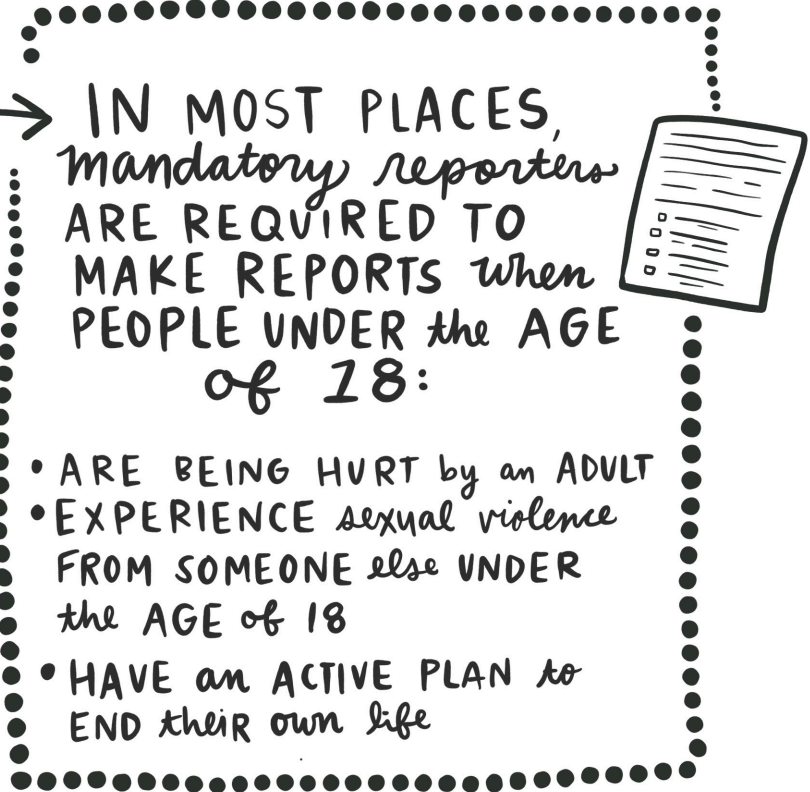 IN MOST PLACES,
mandatory reporters
ARE REQUIRED TO
MAKE REPORTS when
PEOPLE UNDER the AGE
of 18:
• ARE BEING HURT by an ADULT
• EXPERIENCE sexual violence
FROM SOMEONE else UNDER
the AGE of 18
• HAVE an ACTIVE PLAN to
END theiR own life